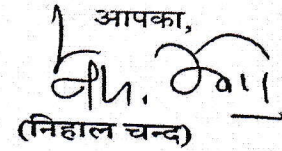 आपका,
(निहाल चन्द)